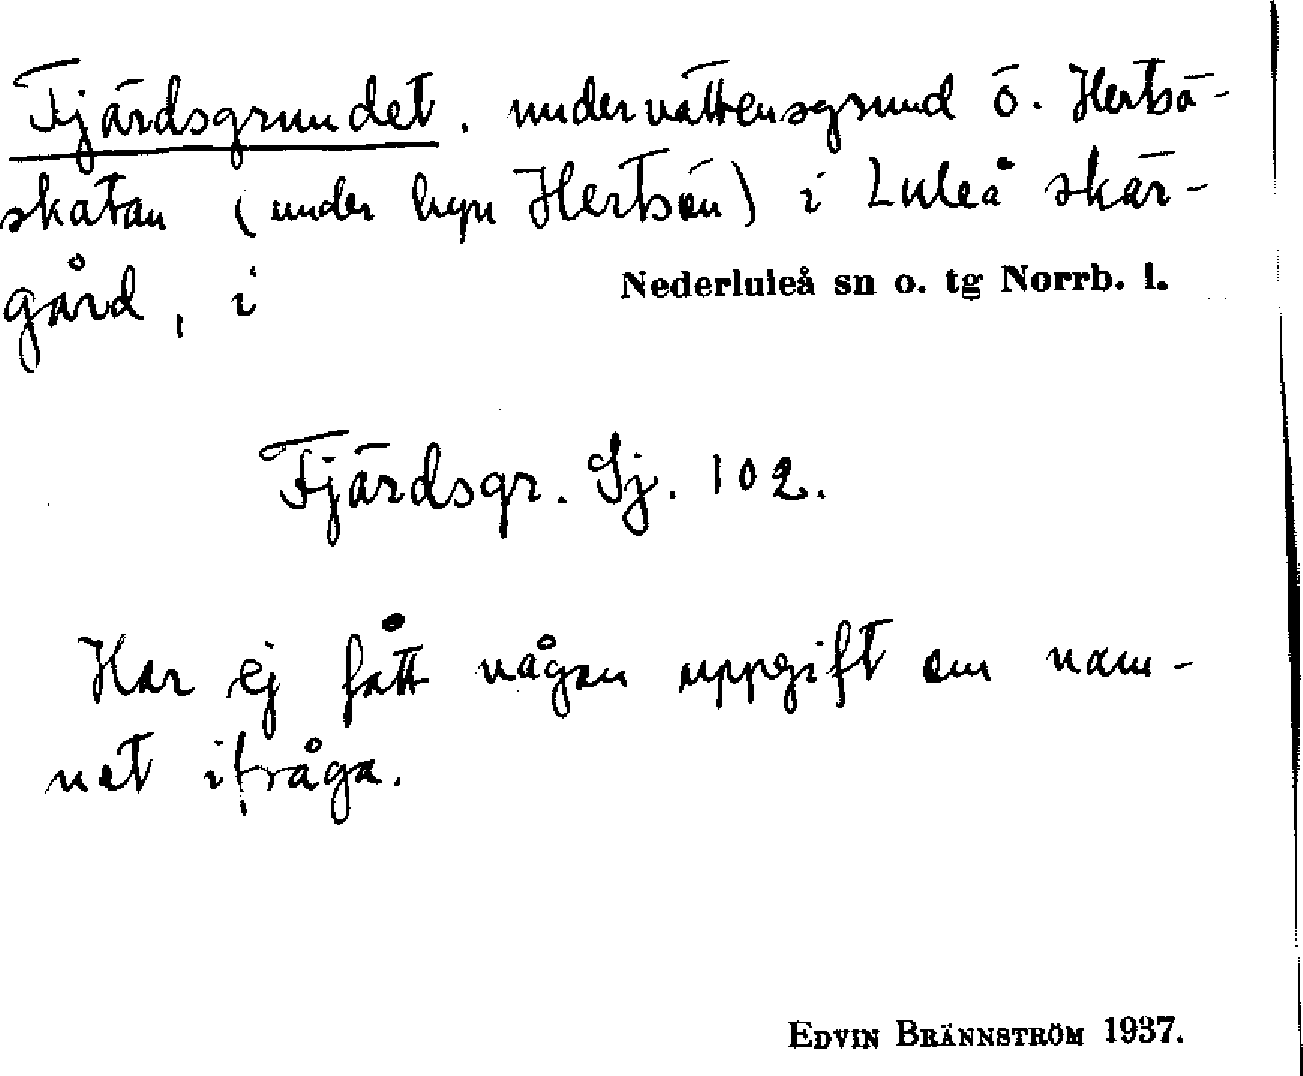 Fjärdsgrundet. undervattensgrund ö. Hertsö-
skatan (under byn Hertsön) i Luleå skär-
gård, i Nederluleå sn o. tg Norrb. l.
Fjärdsgr. Sj. 102.
Har ej fått någon uppgift om nam-
net ifråga.
EDVIN BRÄNNSTRÖM 1937.